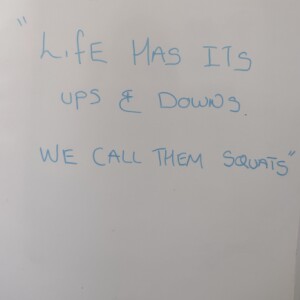 "LifE HAS ITS
UPS & DOWNS.
WE CALL THEM SQUATS"